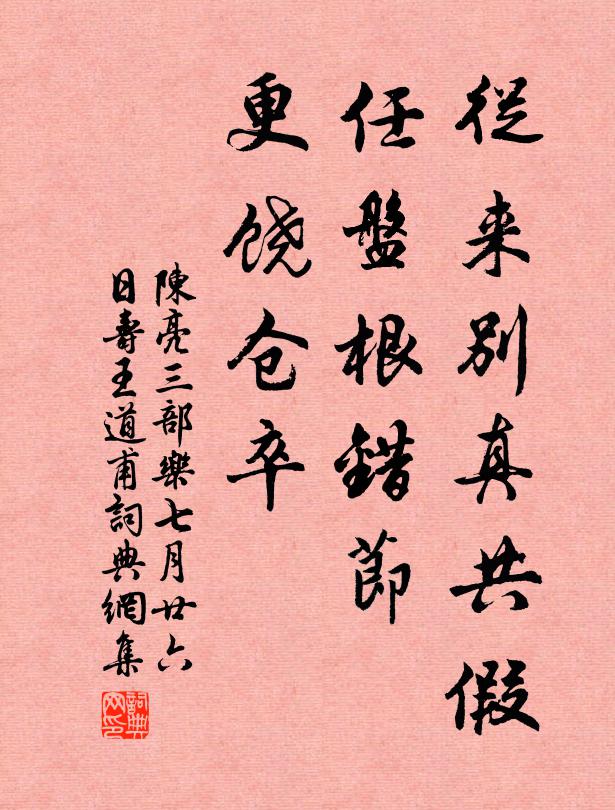 從来別真共假
任盤根錯節
更饒仓卒
陳亮三部樂七月廿六
日壽王道甫詞典網集
詞典网印